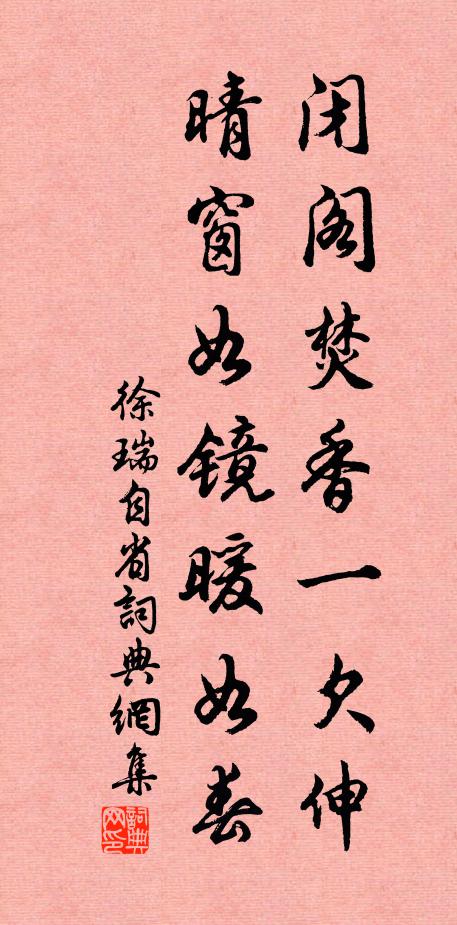 闭阁焚香一欠伸
晴窗如镜暖如春
徐瑞自省詞典網集
詞典网印